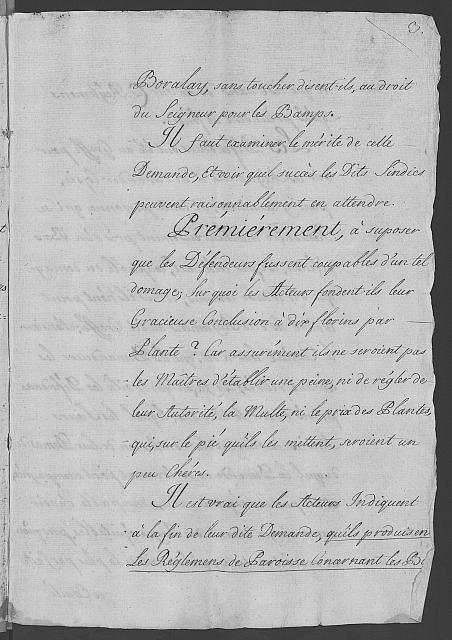 3.
Boralay, sans toucher, disent-ils, au droit
du Seigneur pour les Bamps.
Il faut examiner le mérite de cette
Demande, Et voir quel succès les Dits Sindics
peuvent raisonnablement en attendre.
Prémiérement, à suposer
que les Défendeurs fussent coupables d'un tel
domage; sur quoi les Acteurs fondent-ils leur
Gracieuse Conclusion à dix florins par
Plante? Car assurément ils ne seroient pas
les Maitres d'établir une peine, ni de régler de
leur Autorité, la Multe, ni le prix des Plantes,
qui, sur le pié qu'ils les mettent, seroient un
peu Chéres.
Il est vrai que les Acteurs Indiquent
à la fin de leur dite Demande, qu'ils produisen
Les Réglemens de Paroisse Concernant les B